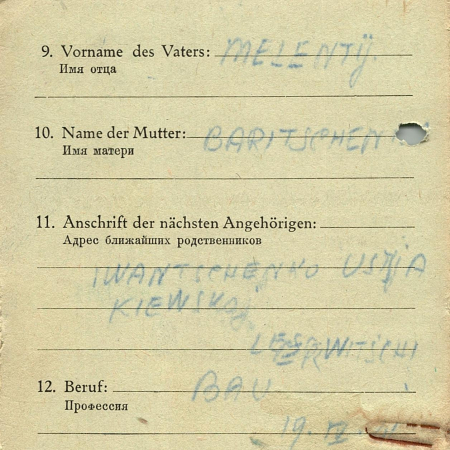 9. Vorname des Vaters: MELENTIJ.
Имя отца
10. Name der Mutter: BARITSCHEN
Имя матери
11. Anschrift der nächsten Angehörigen:
Адрес ближайших родственников
IWANTSCHENKO USTJA
KIEWSKOJ
12. Beruf: BAU
Профессия
19.